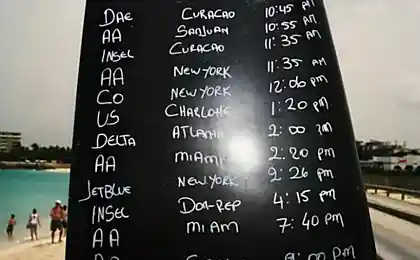 DAE CURACAO 10:45 AM
AA SANJUAN 10:55 AM
INSEL CURACAO 11:35 AM
AA NEWYORK 11:35 AM
CO NEWYORK 12:00 PM
US CHARLOTTE 1:20 PM
DELTA ATLANTA 2:00 PM
AA MIAMI 2:20 PM
JETBLUE NEWYORK 2:26 PM
INSEL DOM-REP 4:15 PM
AA MIAMI 7:40 PM
AA :00 PM